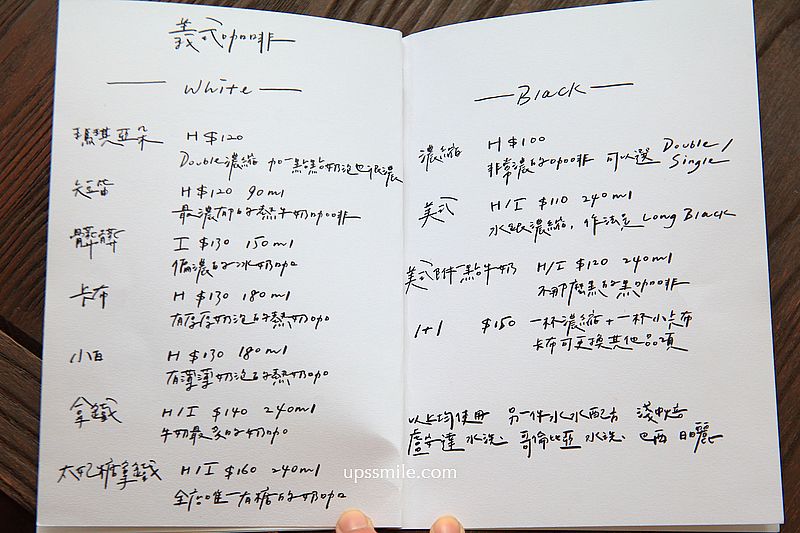 義式咖啡
White
瑪琪亞朵 H $120
Double濃縮 加一點點奶泡也很濃
短笛 H $120 90ml
最濃郁的熱牛奶咖啡
髒髒 I $130 150ml
偏濃的冰奶咖
卡布 H $130 180ml
有厚厚奶泡的熱奶咖
小白 H $130 180ml
有薄薄奶泡的熱奶咖
拿鐵 H/I $140 240ml
牛奶最多的奶咖
太妃糖拿鐵 H/I $160 240ml
全店唯一有糖的奶咖
Black
濃縮 H $100
非常濃的咖啡 可以選 Double/
Single
美式 H/I $110 240ml
水跟濃縮，作法是 Long Black
美式附一點牛奶 H/I $120 240ml
不那麼黑的黑咖啡
1+1 $150 一杯濃縮+一杯小卡布
卡布可更換其他品項
以上均使用 另一件水水配方 淺中焙
盧安達 水洗、哥倫比亞 水洗、巴西 日曬
upssmile.com